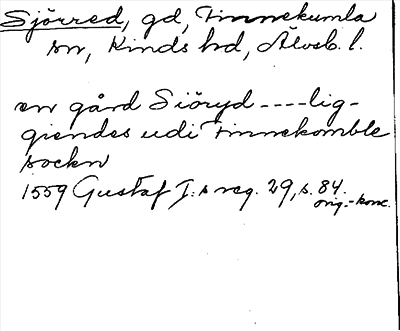 Sjörred, gd, Finnekumla
sn, Kinds hd, Älvsb. l.
en gård Siöryd ----lig-
giendes udi Finnekomble
sockn
1559 Gustaf I:s reg. 29, s. 84.
orig.-konc.